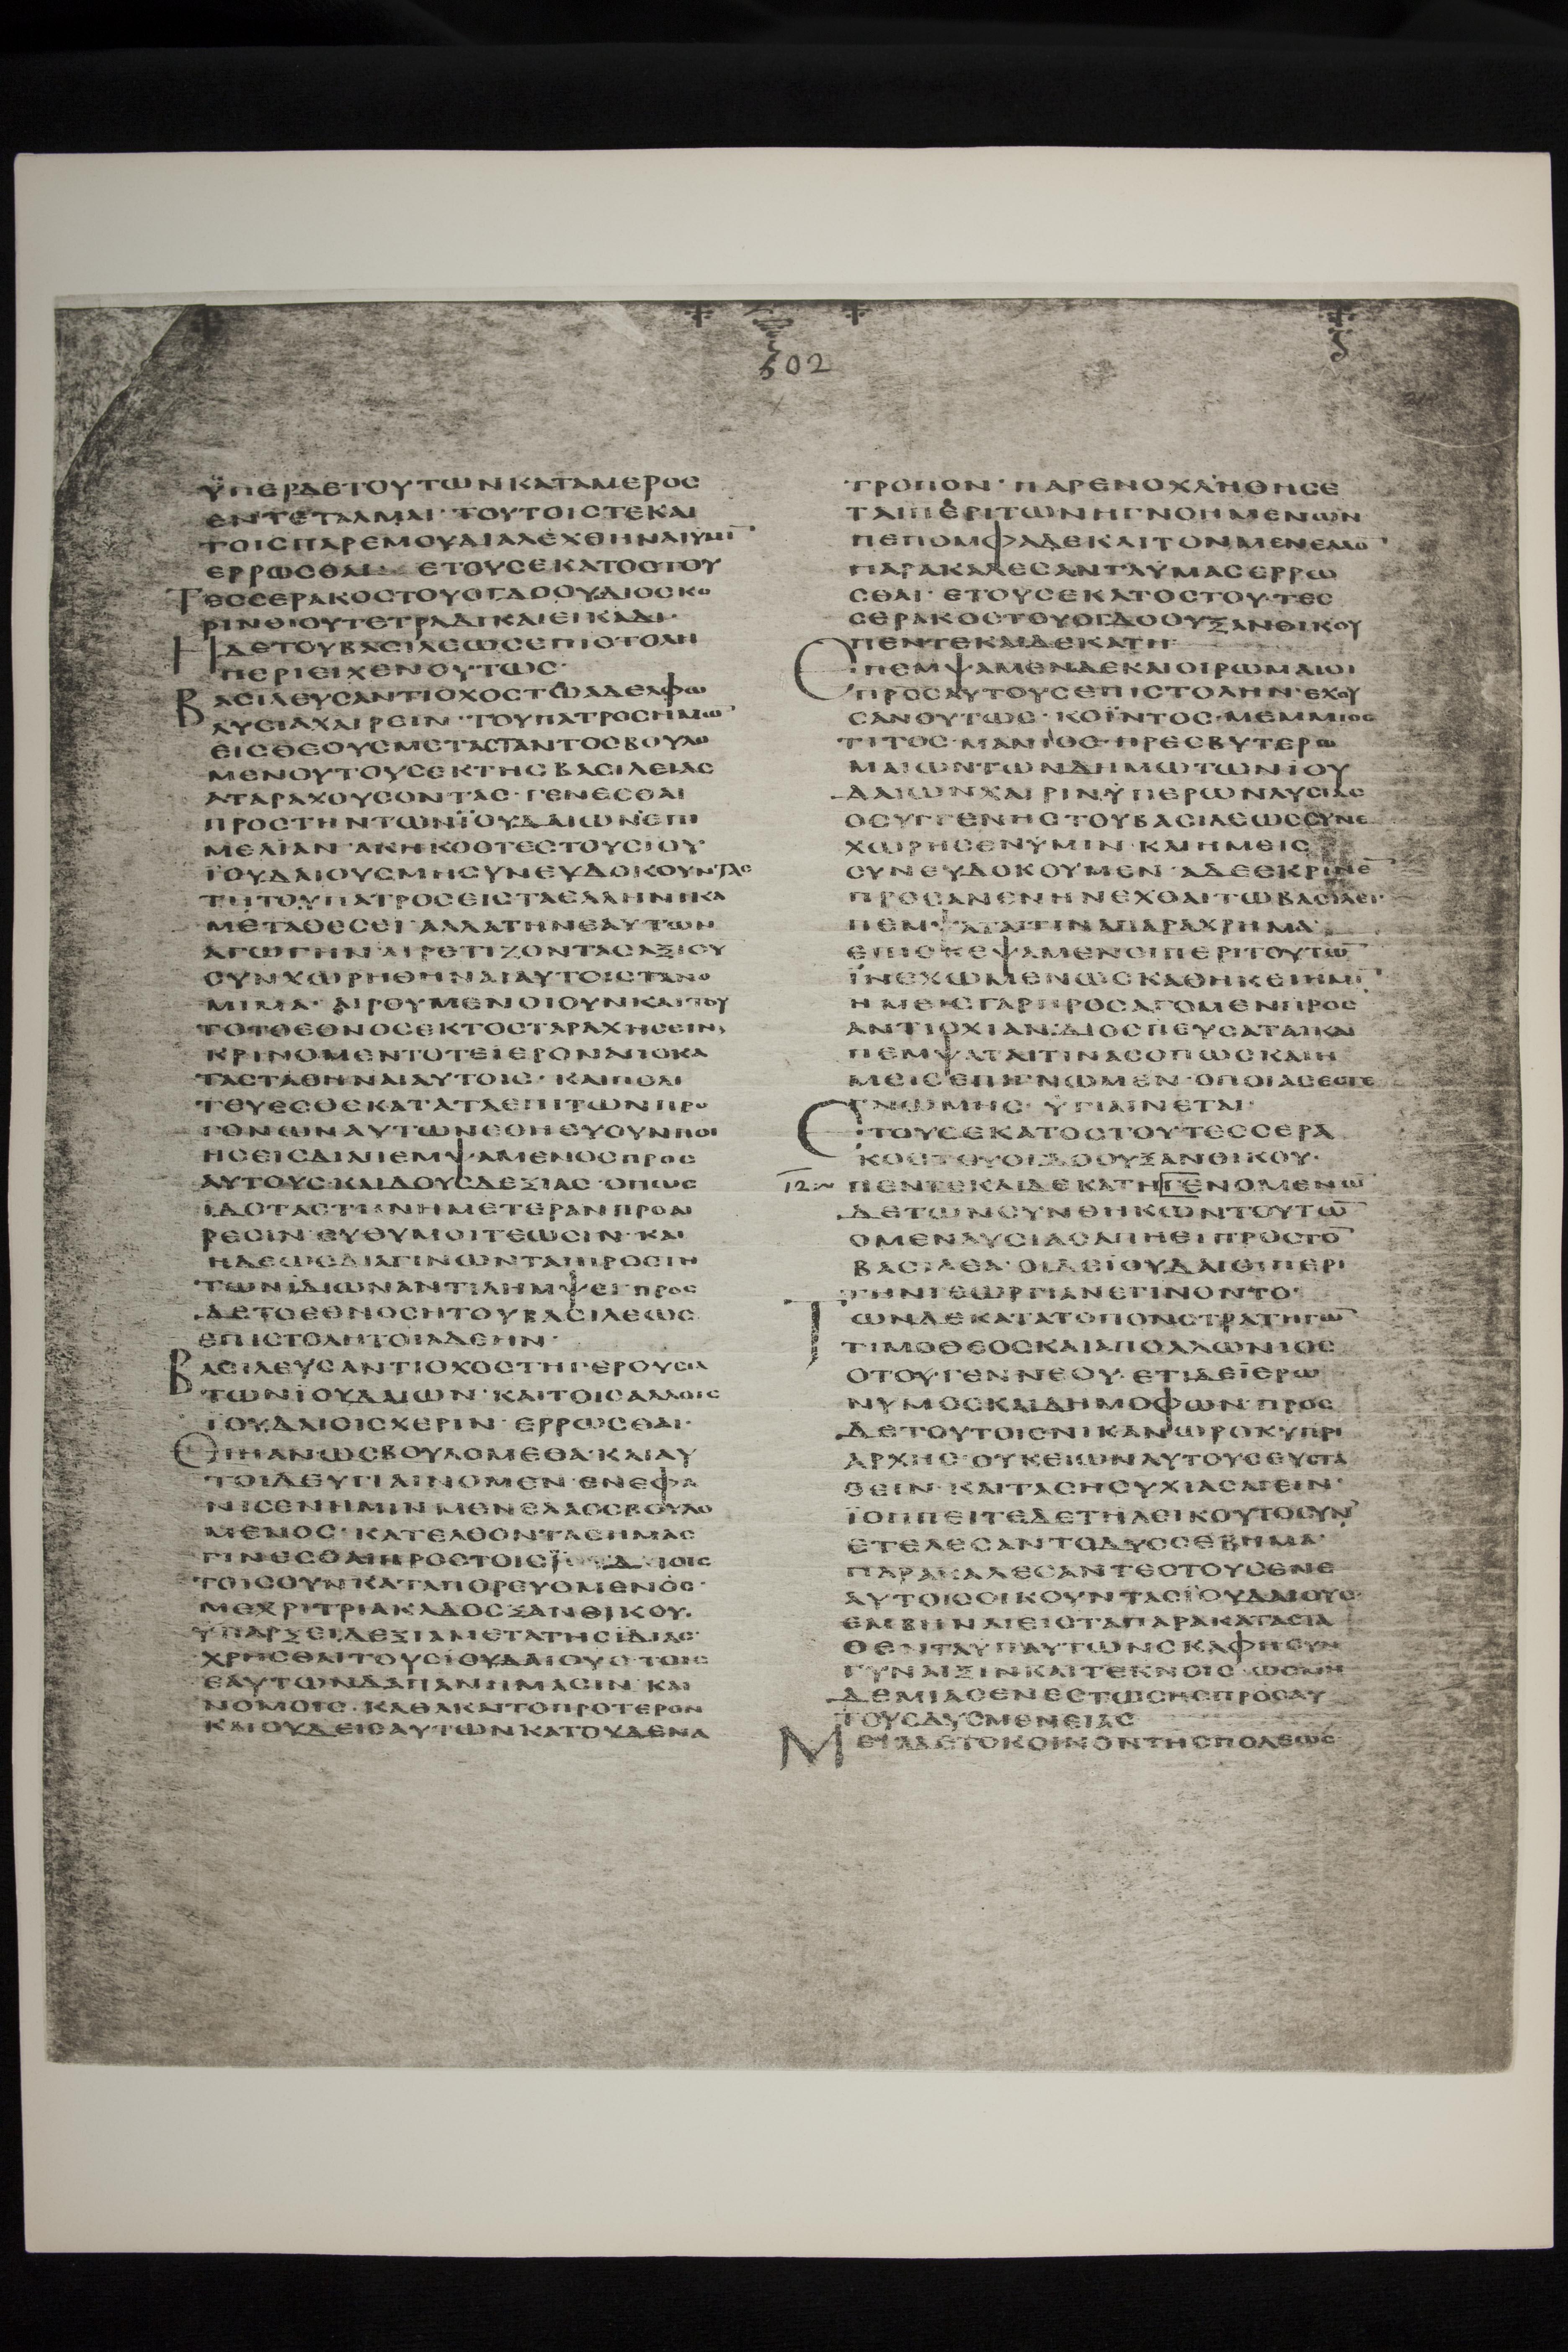 602
ΫΠΕΡΔΕΤΟΥΤΩΝΚΑΤΑΜΕΡΟΣ
ΕΝΤΕΤΑΛΜΑΙ·ΤΟΥΤΟΙΣΤΕΚΑΙ
ΤΟΙΣΠΑΡΕΜΟΥΔΙΑΛΕΧΘΗΝΑΙΥΜΙ̅
ΕΡΡΩΣΘΑΙ· ΕΤΟΥΣΕΚΑΤΟΣΤΟΥ
ΤΕΣΣΕΡΑΚΟΣΤΟΥΟΓΔΟΟΥΔΙΟΣΚΟ
ΡΙΝΘΙΟΥΤΕΤΡΑΔΙΚΑΙΕΙΚΑΔΙ·
ΗΔΕΤΟΥΒΑΣΙΛΕΩΣΕΠΙΣΤΟΛΗ
ΠΕΡΙΕΙΧΕΝΟΥΤΩΣ·
ΒΑΣΙΛΕΥΣΑΝΤΙΟΧΟΣΤΩΑΔΕΛΦΩ
ΛΥΣΙΑΧΑΙΡΕΙΝ·ΤΟΥΠΑΤΡΟΣΗΜΩ̅
ΕΙΣΘΕΟΥΣΜΕΤΑΣΤΑΝΤΟΣΒΟΥΛΟ
ΜΕΝΟΥΤΟΥΣΕΚΤΗΣΒΑΣΙΛΕΙΑΣ
ΑΤΑΡΑΧΟΥΣΟΝΤΑΣ·ΓΕΝΕΣΘΑΙ
ΠΡΟΣΤΗΝΤΩΝΪΟΥΔΑΙΩΝΕΠΙ
ΜΕΛΙΑΝ·ΑΚΗΚΟΟΤΕΣΤΟΥΣΙΟΥ
ΪΟΥΔΑΙΟΥΣΜΗΣΥΝΕΥΔΟΚΟΥΝΤΑΣ
ΤΗΤΟΥΠΑΤΡΟΣΕΙΣΤΑΕΛΛΗΝΙΚΑ
ΜΕΤΑΘΕΣΕΙ·ΑΛΛΑΤΗΝΕΑΥΤΩΝ
ΑΓΩΓΗΝΑΙΡΕΤΙΖΟΝΤΑΣΑΞΙΟΥ
ΣΥΝΧΩΡΗΘΗΝΑΙΑΥΤΟΙΣΤΑΝΟ
ΜΙΜΑ·ΑΙΡΟΥΜΕΝΟΙΟΥΝΚΑΙΤΟΥ
ΤΟΤΟΕΘΝΟΣΕΚΤΟΣΤΑΡΑΧΗΣΕΙΝΑΙ
ΚΡΙΝΟΜΕΝΤΟΤΕΙΕΡΟΝΑΠΟΚΑ
ΤΑΣΤΑΘΗΝΑΙΑΥΤΟΙΣ·ΚΑΙΠΟΛΙ
ΤΟΥΕΣΘΕΚΑΤΑΤΑΕΠΙΤΩΝΠΡΟ
ΓΟΝΩΝΑΥΤΩΝΕΘΗΕΥΟΥΝΠΟΙ
ΗΣΕΙΣΔΙΑΠΕΜΨΑΜΕΝΟΣΠΡΟΣ
ΑΥΤΟΥΣ·ΚΑΙΔΟΥΣΔΕΞΙΑΣ·ΟΠΩΣ
ΙΔΟΤΑΣΤΗΝΗΜΕΤΕΡΑΝΠΡΟΑΙ
ΡΕΣΙΝ·ΕΥΘΥΜΟΙΤΕΩΣΙΝ·ΚΑΙ
ΗΔΕΩΣΔΙΑΓΙΝΩΝΤΑΙΠΡΟΣΤΗ
ΤΩΝΪΔΙΩΝΑΝΤΙΛΗΜΨΕΙ·ΠΡΟΣ
ΔΕΤΟΕΘΝΟΣΗΤΟΥΒΑΣΙΛΕΩΣ
ΕΠΙΣΤΟΛΗΤΟΙΑΔΕΗΝ·
ΒΑΣΙΛΕΥΣΑΝΤΙΟΧΟΣΤΗΓΕΡΟΥΣΙΑ
ΤΩΝΪΟΥΔΑΙΩΝ·ΚΑΙΤΟΙΣΑΛΛΟΙΣ
ΪΟΥΔΑΙΟΙΣΧΕΡΙΝ·ΕΡΡΩΣΘΑΙ·
ΤΟΙΔΕΥΓΙΑΙΝΟΜΕΝ·ΕΝΕΦΑ
ΝΙΣΕΝΗΜΙΝΜΕΝΕΛΑΟΣΒΟΥΛΟ
ΜΕΝΟΣ·ΚΑΤΕΛΘΟΝΤΑΣΗΜΑΣ
ΓΙΝΕΣΘΑΙΠΡΟΣΤΟΙΣΪΟΥΔΑΙΟΙΣ
ΤΟΙΣΟΥΝΚΑΤΑΠΟΡΕΥΟΜΕΝΟΣ·
ΜΕΧΡΙΤΡΙΑΚΑΔΟΣΞΑΝΘΙΚΟΥ·
ΥΠΑΡΞΕΙΔΕΞΙΑΜΕΤΑΤΗΣΪΔΙΑΣ·
ΧΡΗΣΘΑΙΤΟΥΣΙΟΥΔΑΙΟΥΣΤΟΙΣ
ΕΑΥΤΩΝΔΑΠΑΝΗΜΑΣΙΝ·ΚΑΙ
ΝΟΜΟΙΣ·ΚΑΘΑΚΑΙΤΟΠΡΟΤΕΡΟΝ
ΚΑΙΟΥΔΕΙΣΑΥΤΩΝΚΑΤΟΥΔΕΝΑ
ΤΡΟΠΟΝ·ΠΑΡΕΝΟΧΛΗΘΗΣΕ
ΤΑΙΠΕΡΙΤΩΝΗΓΝΟΗΜΕΝΩΝ
ΠΕΠΟΜΦΑΔΕΚΑΙΤΟΝΜΕΝΕΛΑΟ̅
ΠΑΡΑΚΑΛΕΣΑΝΤΑΫΜΑΣΕΡΡΩ
ΣΘΑΙ·ΕΤΟΥΣΕΚΑΤΟΣΤΟΥ·ΤΕΣ
ΣΕΡΑΚΟΣΤΟΥΟΓΔΟΟΥΞΑΝΘΙΚΟΥ
ΠΕΝΤΕΚΑΙΔΕΚΑΤΗ·
ΕΠΕΜΨΑΜΕΝΔΕΚΑΙΟΙΡΩΜΑΙΟΙ
ΠΡΟΣΑΥΤΟΥΣΕΠΙΣΤΟΛΗΝ·ΕΧΟΥ
ΣΑΝΟΥΤΩΣ·ΚΟΪΝΤΟΣ·ΜΕΜΜΙΟΣ
ΤΙΤΟΣ·ΜΑΝΙΟΣ·ΠΡΕΣΒΥΤΕΡΩ
ΜΑΙΩΝΤΩΝΔΗΜΩΤΩΝΙΟΥ
ΔΑΙΩΝΧΑΙΡΙΝ·ΫΠΕΡΩΝΛΥΣΙΑΣ
ΟΣΥΓΓΕΝΗΣΤΟΥΒΑΣΙΛΕΩΣΣΥΝΕ
ΧΩΡΗΣΕΝΫΜΙΝ·ΚΑΙΗΜΕΙΣ
ΣΥΝΕΥΔΟΚΟΥΜΕΝ·ΑΔΕΕΚΡΙΝΕ̅
ΠΡΟΣΑΝΕΝΗΝΕΧΘΑΙΤΩΒΑΣΙΛΕΙ·
ΠΕΜΨΑΤΑΙΤΙΝΑΠΑΡΑΧΡΗΜΑ·
ΕΠΙΣΚΕΨΑΜΕΝΟΙΠΕΡΙΤΟΥΤΩ̅
ΪΝΕΧΩΜΕΝΩΣΚΑΘΗΚΕΙΗΜΙ̅
ΗΜΕΙΣΓΑΡΠΡΟΣΑΓΟΜΕΝΠΡΟΣ
ΑΝΤΙΟΧΙΑΝ·ΔΙΟΣΠΕΥΣΑΤΑΙΚΑΙ
ΠΕΜΨΑΤΑΙΤΙΝΑΣΟΠΩΣΚΑΙΗ
ΜΕΙΣΕΠΗΝΩΜΕΝ·ΟΠΟΙΑΣΕΣΤΕ
ΓΝΩΜΗΣ·ΫΓΙΑΙΝΕΤΑΙ·
ΕΤΟΥΣΕΚΑΤΟΣΤΟΥΤΕΣΣΕΡΑ
ΚΟΣΤΟΥΟΓΔΟΟΥΞΑΝΘΙΚΟΥ·
12
ΠΕΝΤΕΚΑΙΔΕΚΑΤΗΓΕΝΟΜΕΝΩ̅
ΔΕΤΩΝΣΥΝΘΗΚΩΝΤΟΥΤΩ̅
ΟΜΕΝΛΥΣΙΑΣΑΠΗΕΙΠΡΟΣΤΟ̅
ΒΑΣΙΛΕΑ·ΟΙΔΕΪΟΥΔΑΙΟΙΠΕΡΙ
ΤΗΝΓΕΩΡΓΙΑΝΕΓΙΝΟΝΤΟ·
ΤΩΝΔΕΚΑΤΑΤΟΠΟΝΣΤΡΑΤΗΓΩ̅
ΤΙΜΟΘΕΟΣΚΑΙΑΠΟΛΛΩΝΙΟΣ
ΟΤΟΥ·ΓΕΝΝΕΟΥ·ΕΤΙΔΕΪΕΡΩ
ΝΥΜΟΣΚΑΙΔΗΜΟΦΩΝ·ΠΡΟΣ
ΔΕΤΟΥΤΟΙΣΝΙΚΑΝΩΡΟΚΥΠΡΙ
ΑΡΧΗΣ·ΟΥΚΕΙΩΝΑΥΤΟΥΣΕΥΣΤΑ
ΘΕΙΝ·ΚΑΙΤΑΣΗΣΥΧΙΑΣΑΓΕΙΝ·
ΪΟΠΠΕΙΤΕΔΕΤΗΛΕΙΚΟΥΤΟΣΥΝ
ΕΤΕΛΕΣΑΝΤΟΔΥΣΣΕΒΗΜΑ·
ΠΑΡΑΚΑΛΕΣΑΝΤΕΣΤΟΥΣΕΝΕ
ΑΥΤΟΙΣΟΙΚΟΥΝΤΑΣΪΟΥΔΑΙΟΥΣ·
ΕΜΒΗΝΑΙΕΙΣΤΑΠΑΡΑΚΑΤΑΣΤΑ
ΘΕΝΤΑΫΠΑΥΤΩΝΣΚΑΦΗΣΥΝ
ΓΥΝΑΙΞΙΝΚΑΙΤΕΚΝΟΙΣ·ΩΣΜΗ
ΔΕΜΙΑΣΕΝΕΣΤΩΣΗΣΠΡΟΣΑΥ
ΤΟΥΣΔΥΣΜΕΝΕΙΑΣ
ΜΕΤΑΔΕΤΟΚΟΙΝΟΝΤΗΣΠΟΛΕΩΣ